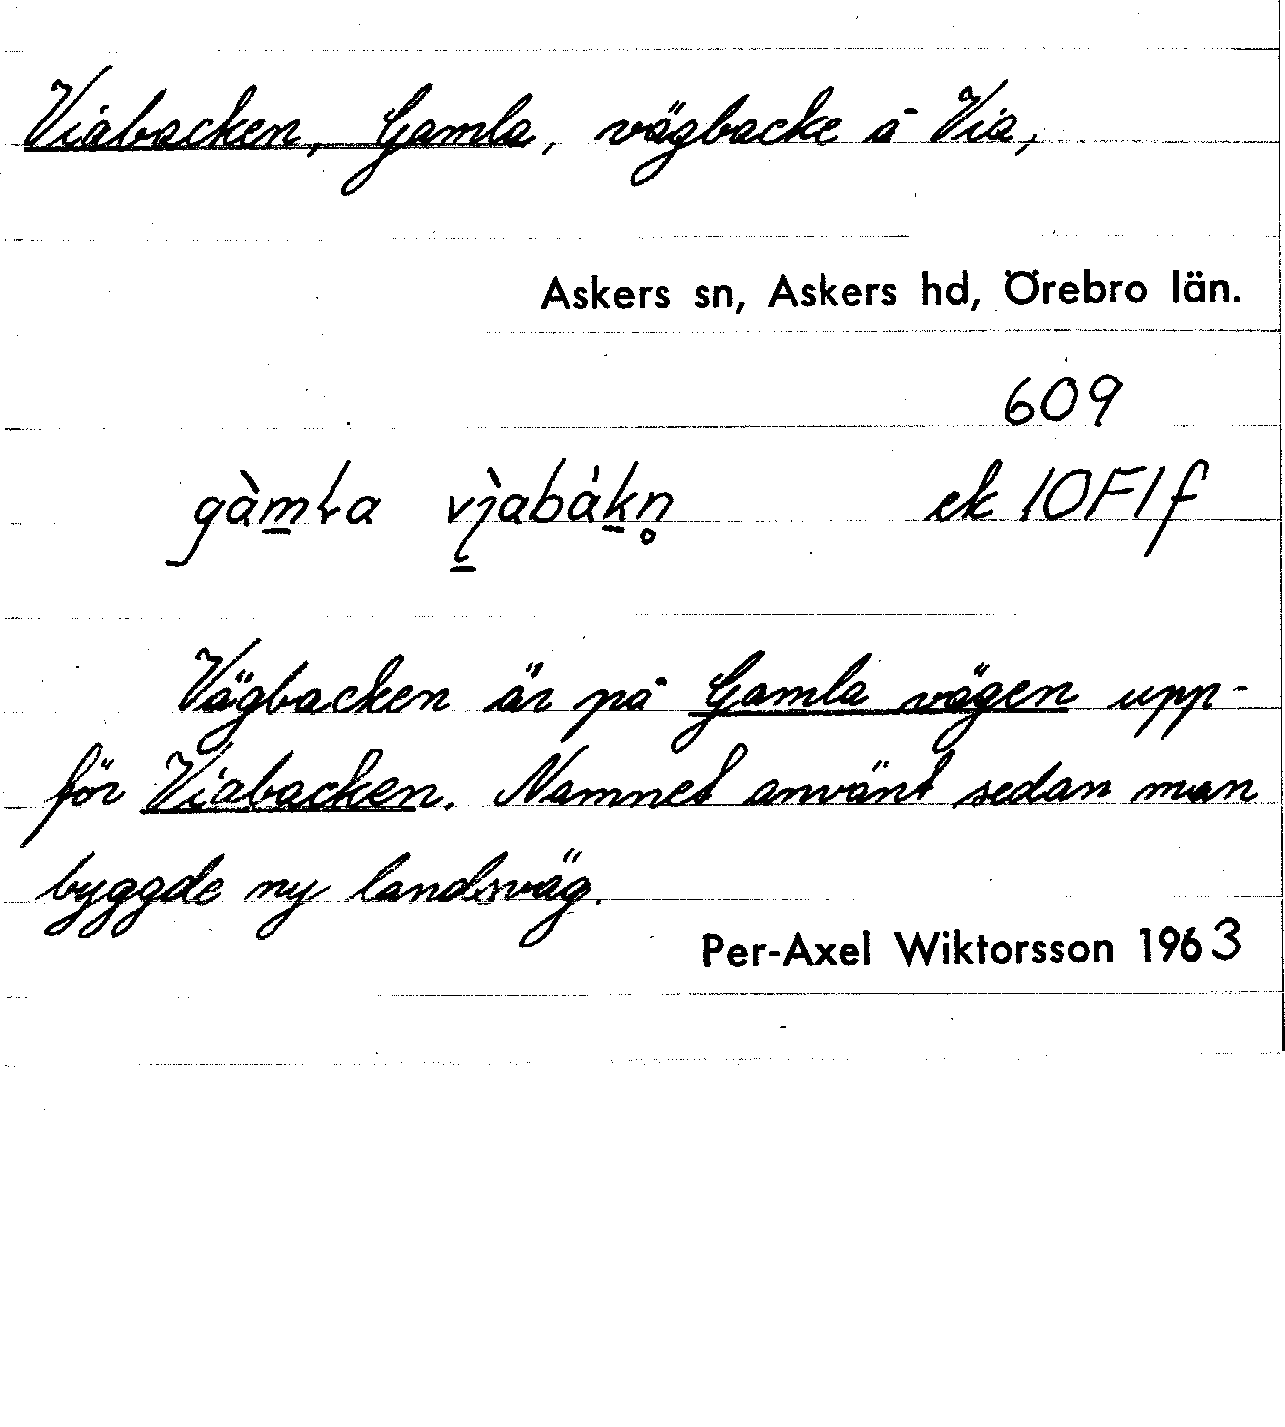 Viabacken, Gamla, vägbacke å Via,
Askers sn, Askers hd, Örebro län.
609
gàmla vjabákn̥ ek 10F1f
Vägbacken är på Gamla vägen upp-
för Viabacken. Namnet använt sedan man
byggde ny landsväg.
Per-Axel Wiktorsson 1963